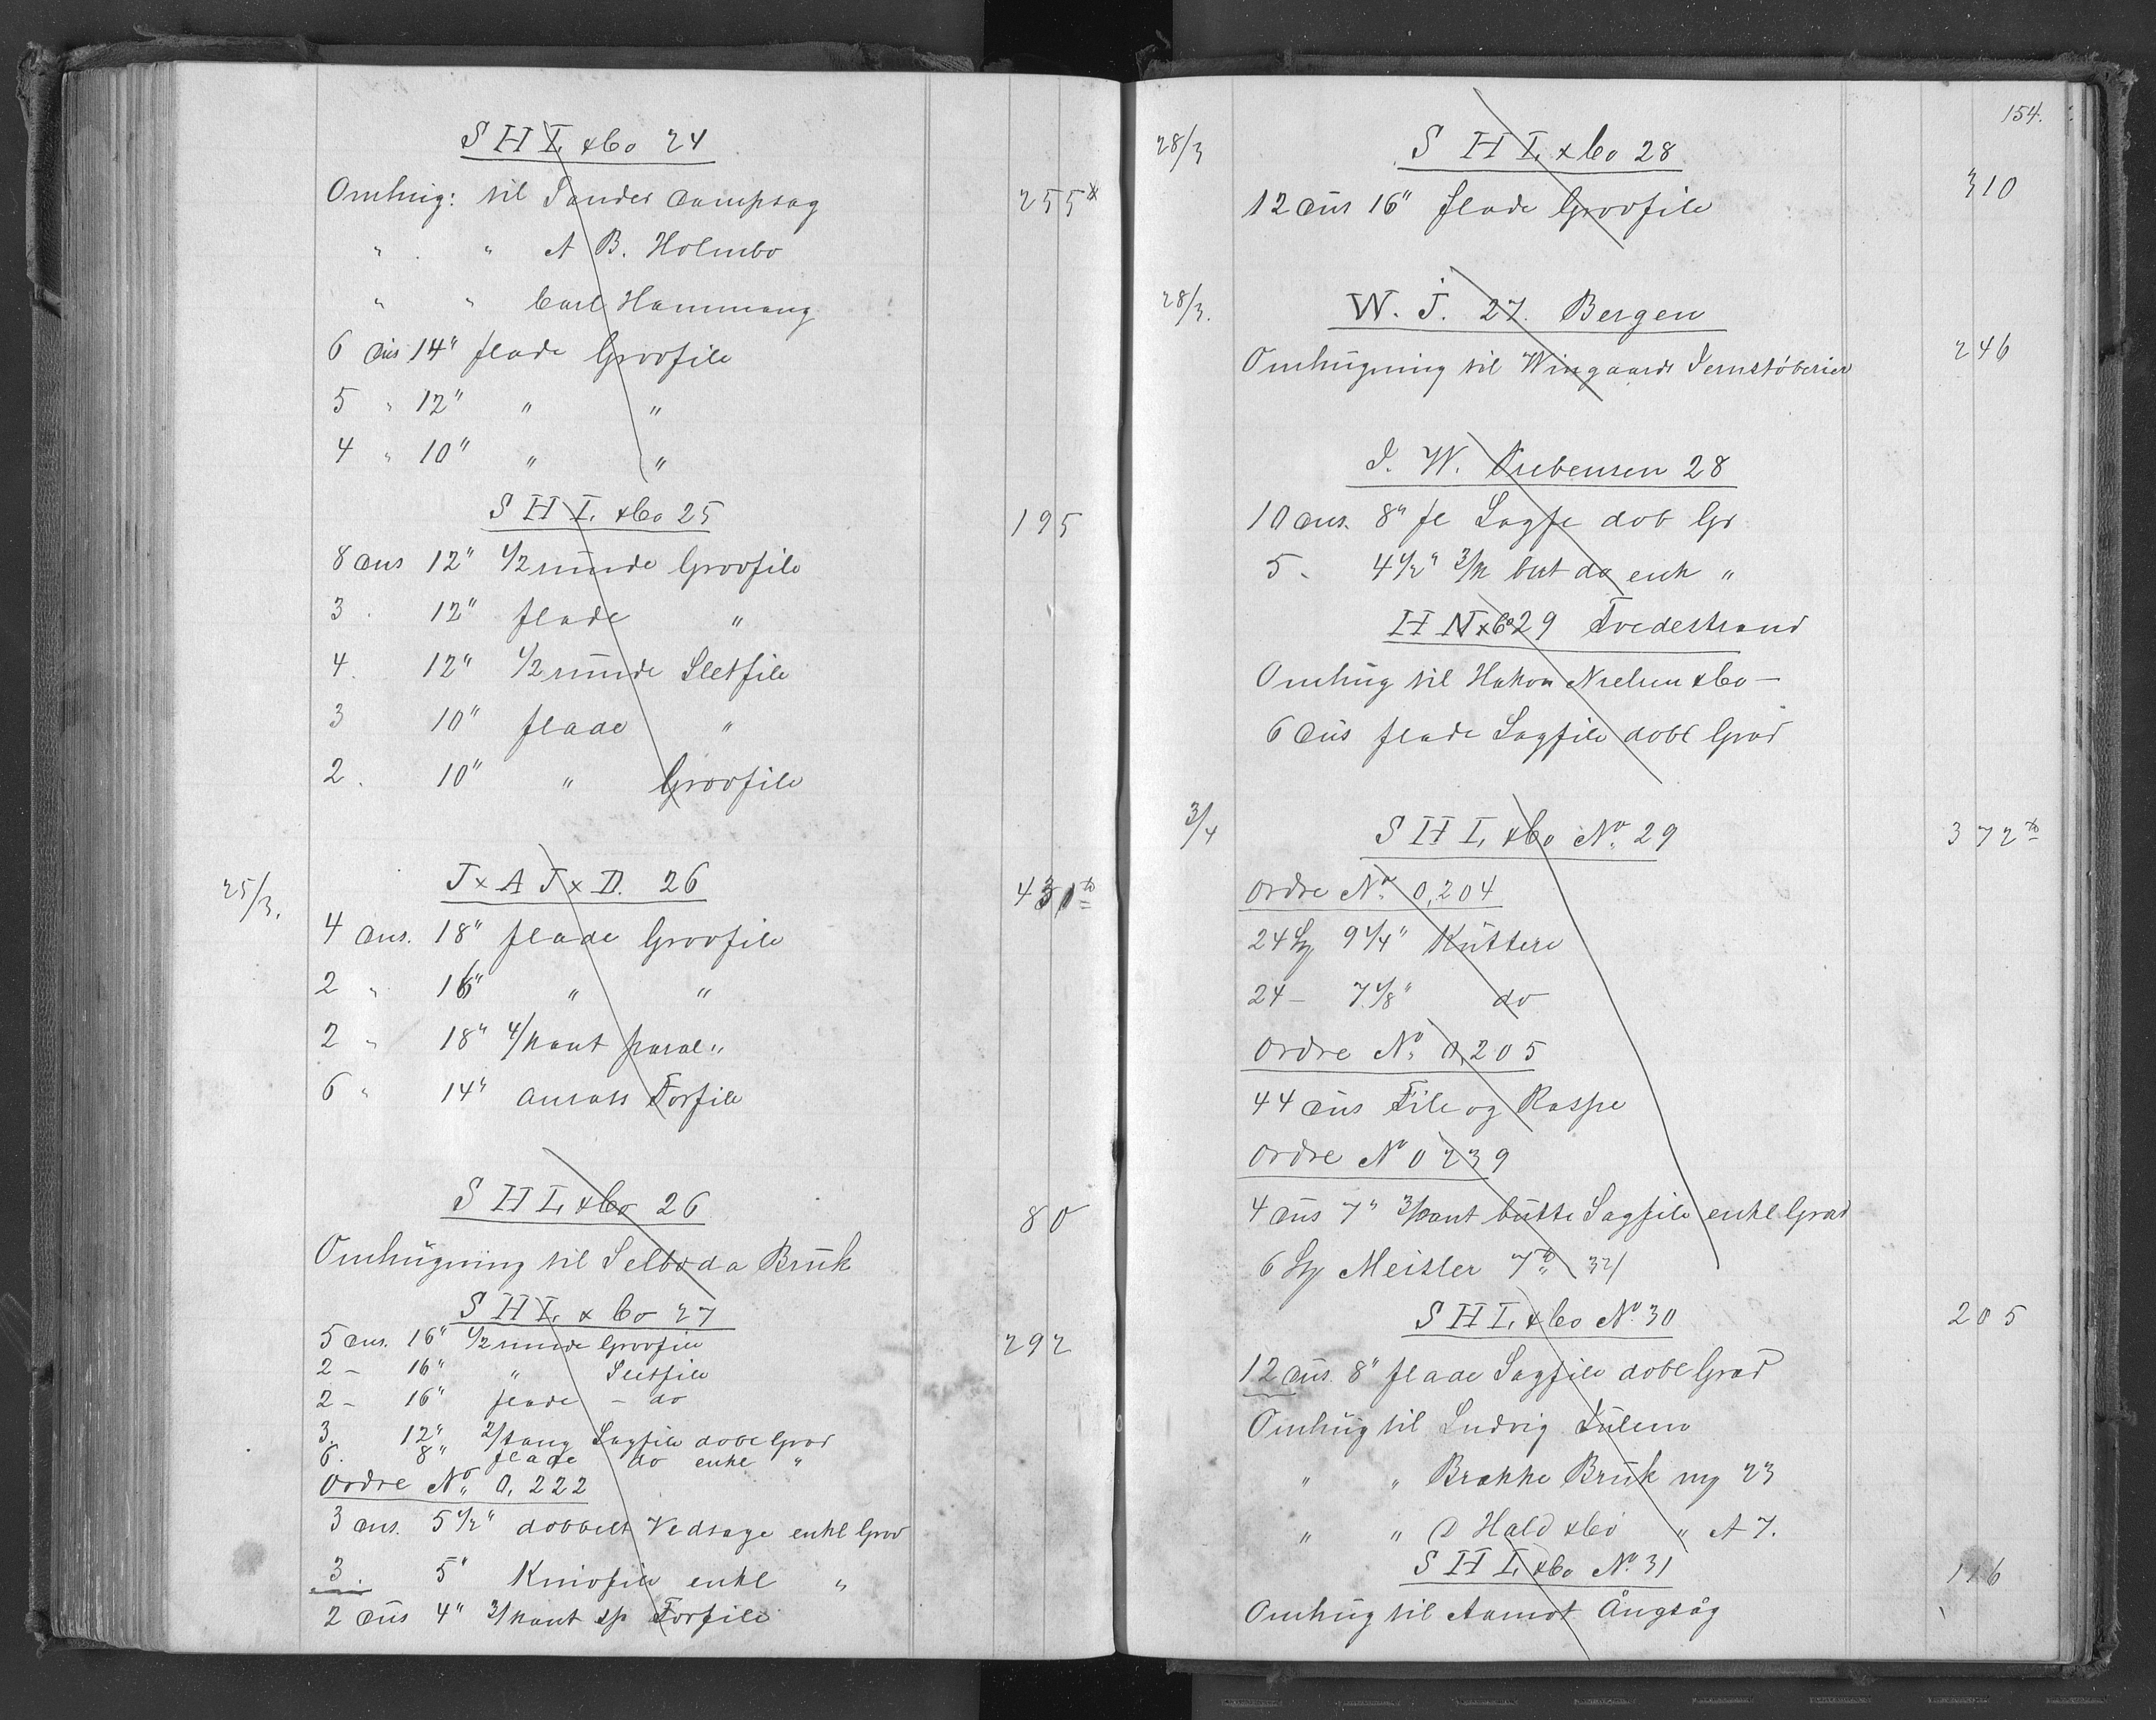 S H L & Co 24
Omhug: til Sandes Dampsag 255
" " A B. Holmbo
" " Carl Hammang
6 Dus 14" flade Grovfile
5 " 12" " "
4 " 10" " "
S H L & Co 25 195
8 Dus 12" 1/2 runde Grovfile
3 . 12" flade "
4 . 12" 1/2 runde Sletfile
3 10" flade "
2 . 10" " Grovfile
25/3. J & A J & D. 26 431
4 Dus. 18" flade Grovfile
2 " 16" " "
2 " 18" 4/kant paral "
6 " 14" Ansats Forfile
S H L & Co 26 80
Omhugning til Selboda Bruk
S H L & Co 27
5 Dus. 16" 1/2 runde Grovfile 292
2 - 16" " Sletfile
2 - 16" flade - do
3. 12" Sagfile dobl Grad
6. 8" flade do enkl "
Ordre No. 0,222
3 Dus. 5 1/2" dobbelt Vedsage enkl Grad
3 . 5" Knivfile enkl "
2 Dus 4" 3/kant sp Forfile
154.
28/3 S H L & Co 28
12 Dus 16" flade Grovfile 310
28/3. W. J. 27. Bergen
Omhugning til Wingaards Jernstøberier 246
J. W. 28
10 Dus. 8" fl Sagfe dob Gr
5 . 4 1/2" 3/k but do enk "
H N & Co 29 Tvedestrand
Omhug til Hakon Nielsen & Co -
6 Dus flade Sagfile dobl Grad
3/4 S H L & Co No. 29 372
Ordre No. 0,204
24 9 1/4" Kuttere
24 - 7 1/8" do
Ordre No. 0,205
44 Dus File og Raspe
Ordre No 0239
4 Dus 7" 3/kant butte Sagfile enkl Grad
6 Meisler 7
S H L & Co No. 30 205
12 Dus. 8" flade Sagfile dobl Grad
Omhug til Ludvig
" " Brække Bruk 23
" " Hald & Co " A 7.
S H L & Co No. 31 116
Omhug til Aamot Ångsåg